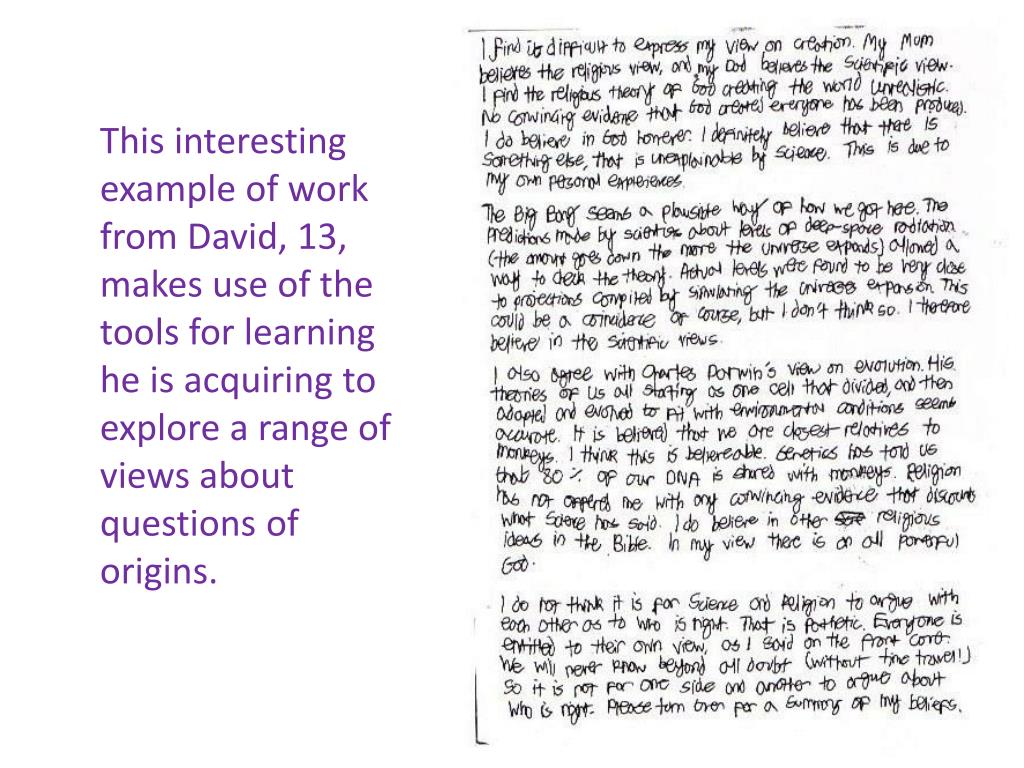 This interesting
example of work
from David, 13,
makes use of the
tools for learning
he is acquiring to
explore a range of
views about
questions of
origins.
I find it difficult to express my view on creation. My Mum
believes the religious view, and my Dad believes the Scientific view.
I find the religious theory of God creating the world unrealistic.
No convincing evidence that God created everyone has been produced.
I do believe in God however. I definitely believe that there is
something else, that is unexplainable by science. This is due to
my own personal experiences.
The Big Bang seems a plausible way of how we got here. The
predictions made by scientists about levels of deep-space radiation
(the amount goes down the more the universe expands) allowed a
way to check the theory. Actual levels were found to be very close
to projections compiled by simulating the universes expansion. This
could be a coincidence of course, but I don't think so. I therefore
believe in the scientific views.
I also agree with Charles Darwin's view on evolution. His
theories of us all starting as one cell that divided, and then
adapted and evolved to fit with environmental conditions seems
accurate. It is believed that we are closest relatives to
monkeys. I think this is believeable. Genetics has told us
that 80% of our DNA is shared with monkeys. Religion
has not offered me with any convincing evidence that discounts
what Science has said. I do believe in other religious
ideas in the Bible. In my view there is an all powerful
God.
I do not think it is for Science and Religion to argue with
each other as to who is right. That is Pathetic. Everyone is
entitled to their own view, as I said on the front card.
We will never know beyond all doubt (without time travel!)
So it is not for one side and another to argue about
who is right. Please turn over for a summary of my beliefs.